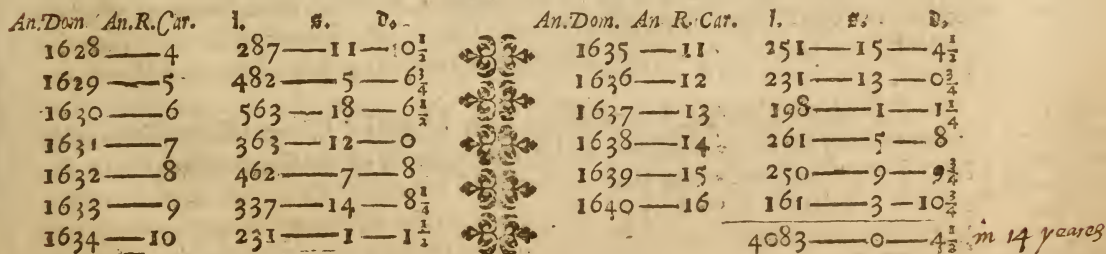 An.Dom. An.R.Car. l. s. d.
1628—4 287—11—10½
1629—5 482—5—6¾
1630—6 563—18—6½
1631—7 363—12—0
1632—8 462—7—8
1633—9 337—14—8¼
1634—10 231—1—1½
An.Dom. An R. Car. l. s. d.
1635—11 251—15—4½
1636—12 231—13—0¾
1637—13 198—1—1¼
1638—14 261—5—8
1639—15 250—9—9¾
1640—16 161—3—10¾
4083—0—4½ in 14 yeares